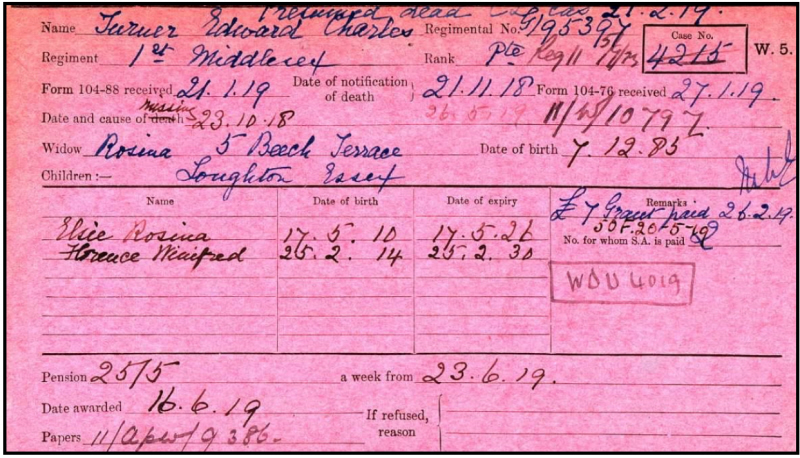 Presumed dead 21.2.19.
Name Turner Edward Charles Regimental No. G/95397
Case No.
Regiment 1st Middlesex Rank Pte 4215 W. 5.
Form 104-88 received 21.1.19 Date of notification of death 21.11.18 Form 104-76 received 27.1.19.
Date and cause of death missing 23.10.18 11/W/10797
Widow Rosina 5 Beech Terrace Date of birth 7.12.85
Children :— Loughton Essex
Name Date of birth Date of expiry Remarks
£7 Grant paid 26.2.19.
Elsie Rosina 17.5.10 17.5.26
No. for whom S.A. is paid 2
Florence Winifred 25.2.14 25.2.30
WDU 4019
Pension 25/5 a week from 23.6.19.
Date awarded 16.6.19 If refused, reason
Papers 11/apw/9386